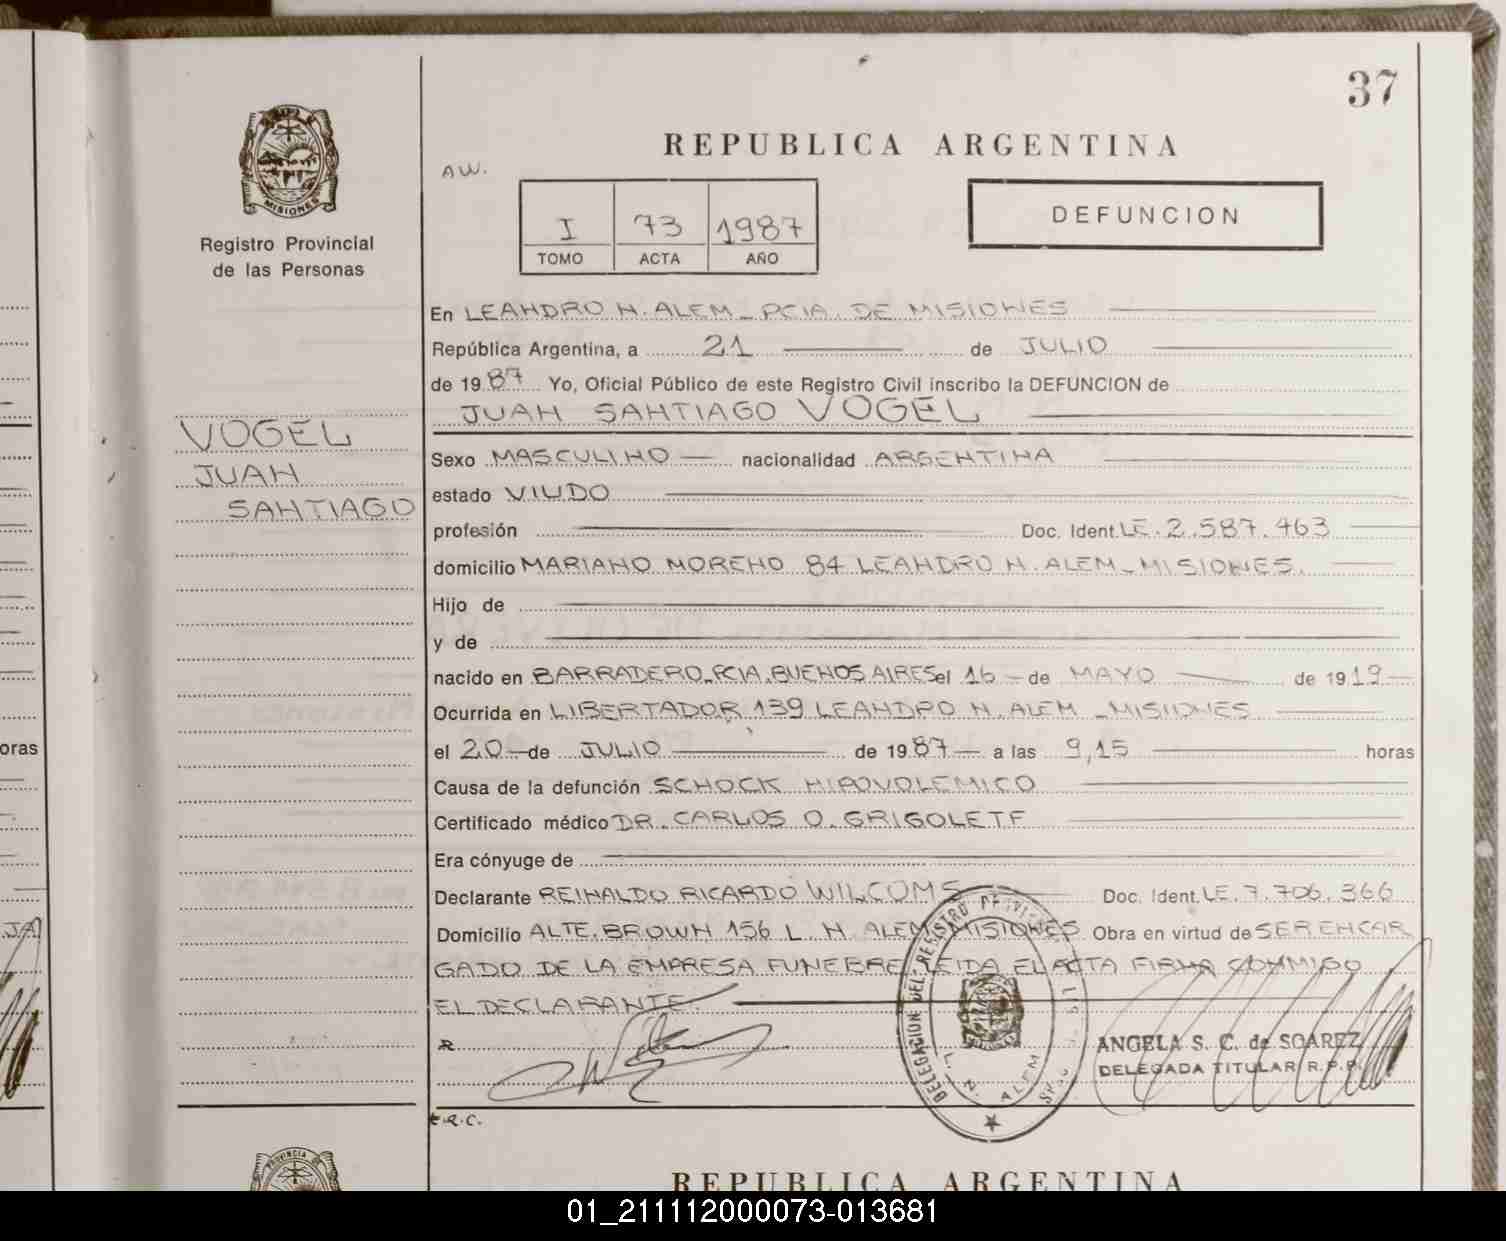 37
REPUBLICA ARGENTINA
AW.
MISIONES
Registro Provincial
de las Personas
I 73 1987
TOMO ACTA AÑO
DEFUNCION
En LEANDRO N. ALEM - PCIA. DE MISIONES
República Argentina, a 21 de JULIO
de 1987 Yo, Oficial Público de este Registro Civil inscribo la DEFUNCION de
JUAN SANTIAGO VOGEL
VOGEL
JUAN
SANTIAGO
Sexo MASCULINO nacionalidad ARGENTINA
estado VIUDO
profesión Doc. Ident. LE. 2.587.463
domicilio MARIANO MORENO 84 LEANDRO N. ALEM - MISIONES.
Hijo de
y de
nacido en BARRADERO - PCIA. BUENOS AIRES el 16 de MAYO de 1919
Ocurrida en LIBERTADOR 139 LEANDRO N. ALEM - MISIONES
el 20 de JULIO de 1987 a las 9,15 horas
Causa de la defunción SCHOCK HIPOVOLEMICO
Certificado médico DR. CARLOS O. GRIGOLETF
Era cónyuge de
Declarante REINALDO RICARDO WILCOMS Doc. Ident. LE. 7.706.366
Domicilio ALTE. BROWN 156 L. N. ALEM MISIONES Obra en virtud de SER ENCAR
GADO DE LA EMPRESA FUNEBRE LEIDA EL ACTA FIRMA CONMIGO
EL DECLARANTE.
DELEGACION DEL REGISTRO PROVINCIAL
L. N. ALEM
ANGELA S. C. de SOAREZ
DELEGADA TITULAR R.P.P.
R.C.
oras
JA
PROVINCIA DE
REPUBLICA ARGENTINA
01_211112000073-013681